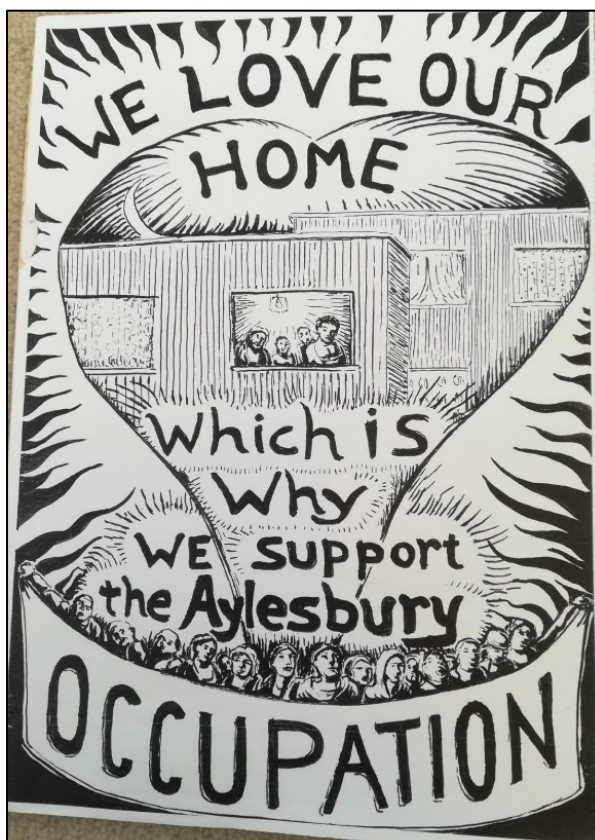 WE LOVE OUR
HOME
Which is
Why
WE Support
the Aylesbury
OCCUPATION